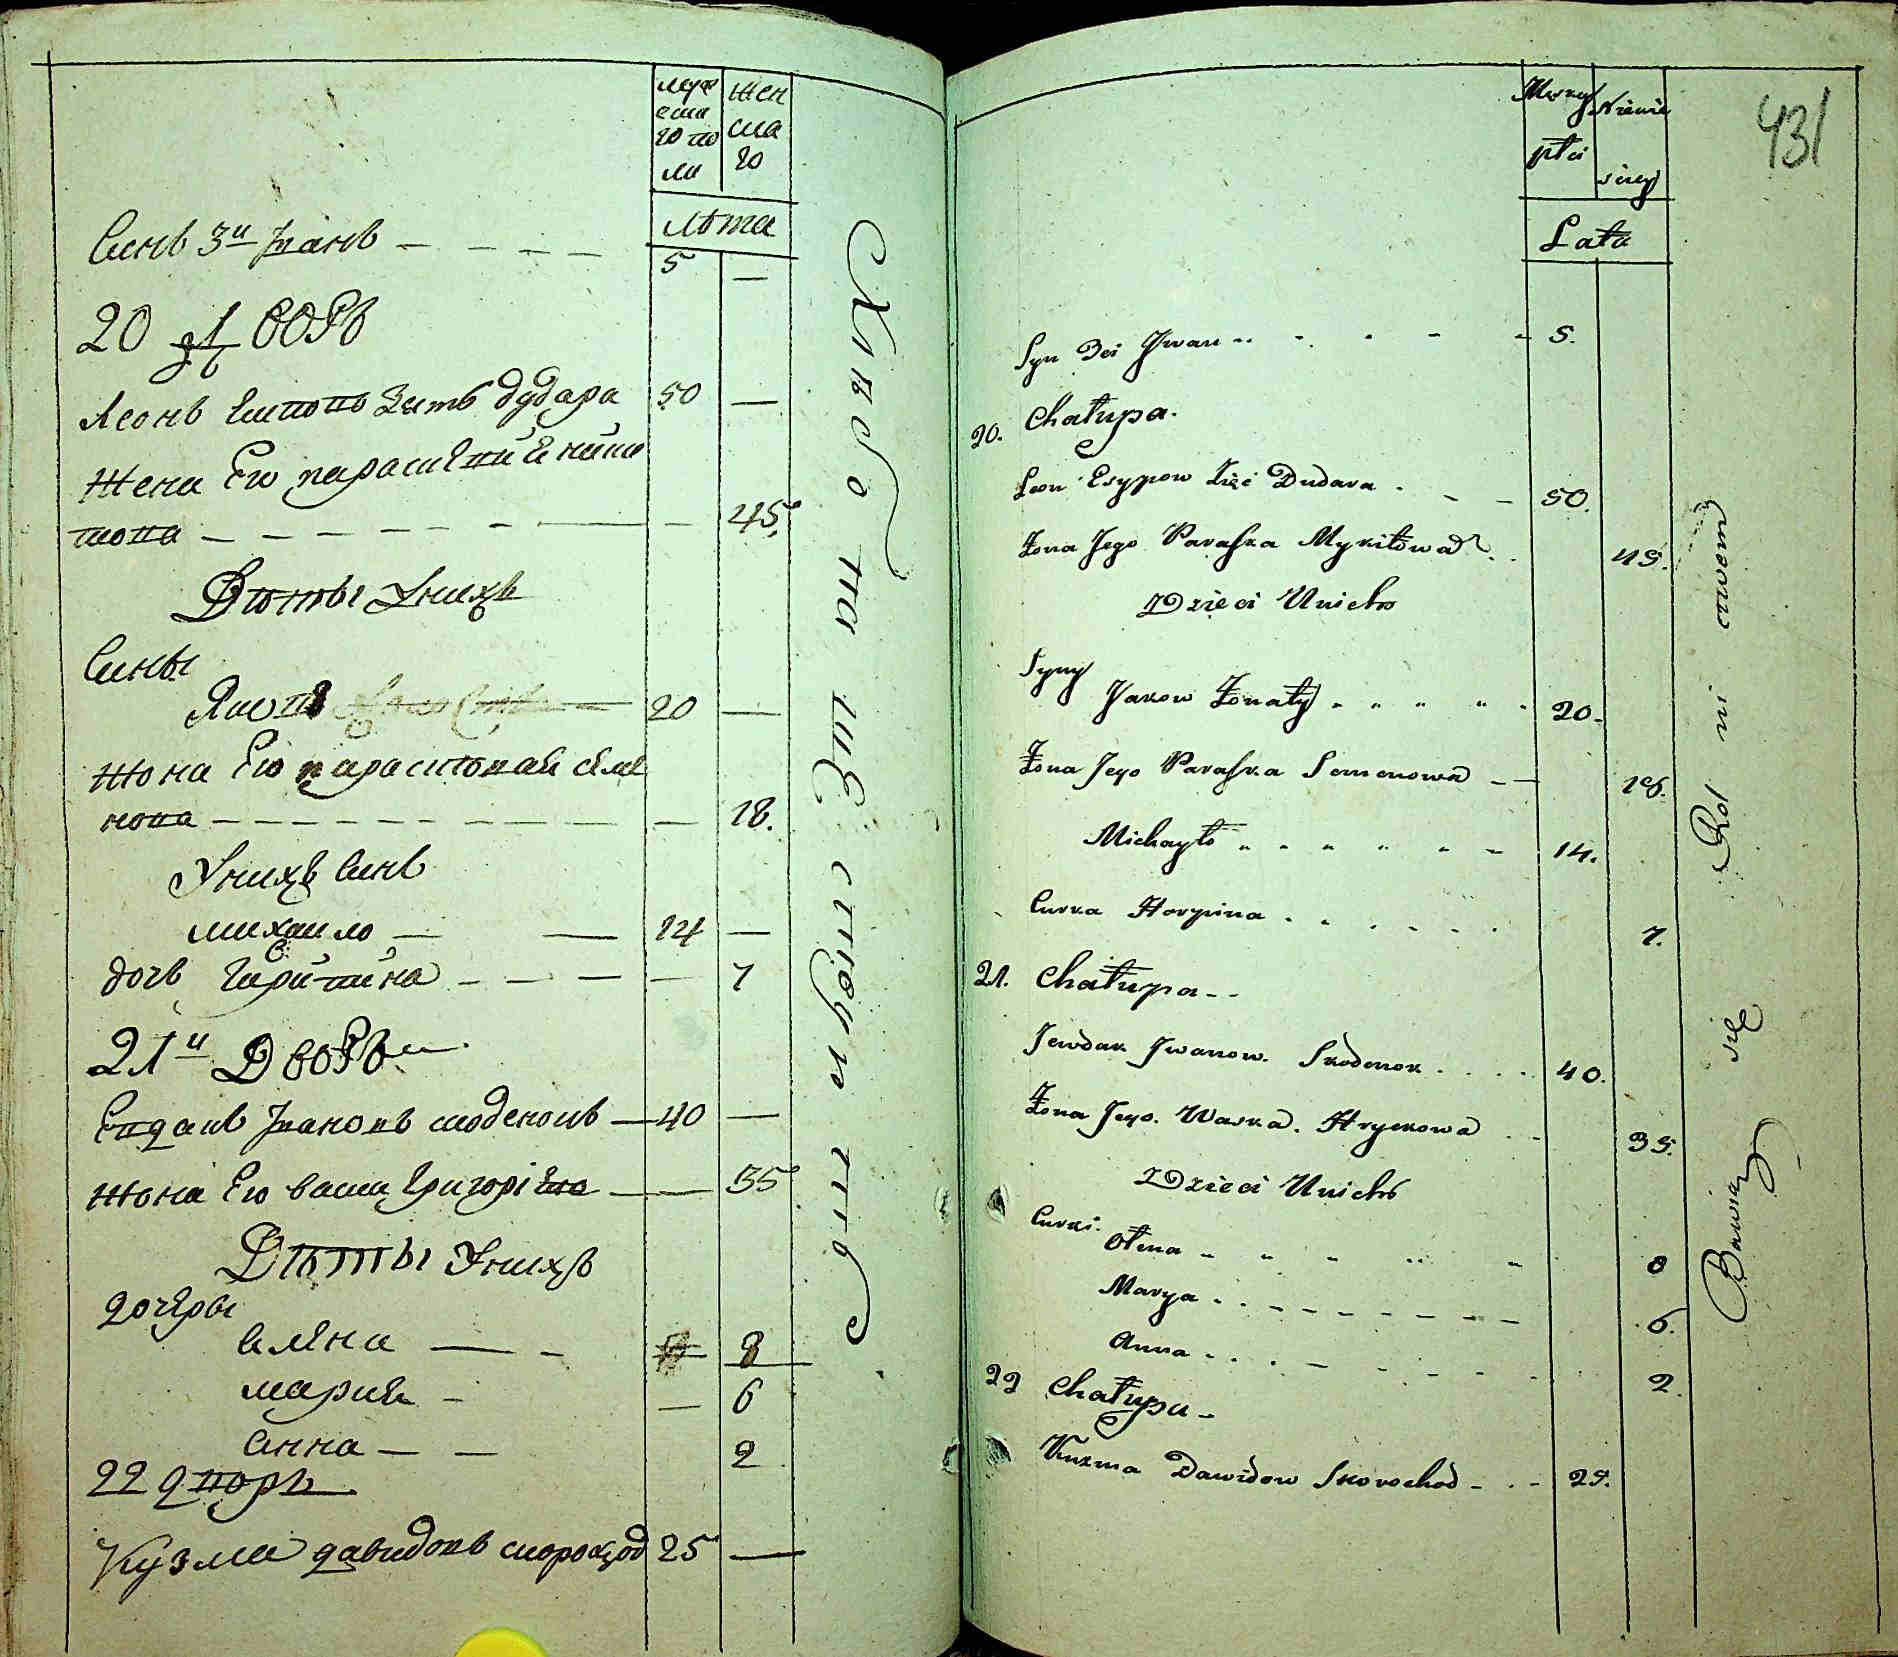 мужеска го по ла
женска го
Лѣта
Синъ 3й Иванъ — — — — 5 —
20 дворъ
Леонъ Есиповъ Зять дудара 50 —
Жена Его параскевия Ники
това — — — — — — 45
Дѣти Унихъ
Сины
Яковъ 20 —
Жона Его параскевия Семе
нова — — — — — — — — 18.
Унихъ Синъ
михаило — — 14 —
дочь Гарпина — — — — 7
21й Дворъ
Евдакъ Ивановъ скоденокъ — 40 —
Жона Его васка Григоріева — — 35
Дѣти Унихъ
дочеры
Алена — — 8
мария — — 6
Анна — — 2
22 дворъ
Кузма давидовъ скороход 25 —
431
Męzkiey płci
Niewieściey
Lata
Syn 3ci Jwan 5.
20. Chałupa.
Leon Esypow Zięć Dudara 50.
Żona Jego Paraska Mykitowa 45.
Dzieci Unichъ
Syny
Jakow Żonaty 20.
Żona Jego Paraska Semenowa 18.
Michayło 14.
Curka Horpina 7.
21. Chałupa
Jewdak Jwanow. Skodenok 40.
Żona Jego. Waska. Hryckowa 35.
Dzieci Unichъ
Curki.
Ołena 8
Marya 6.
Anna 2.
22 Chałupa
Kuzma Dawidow Skorochod 25.